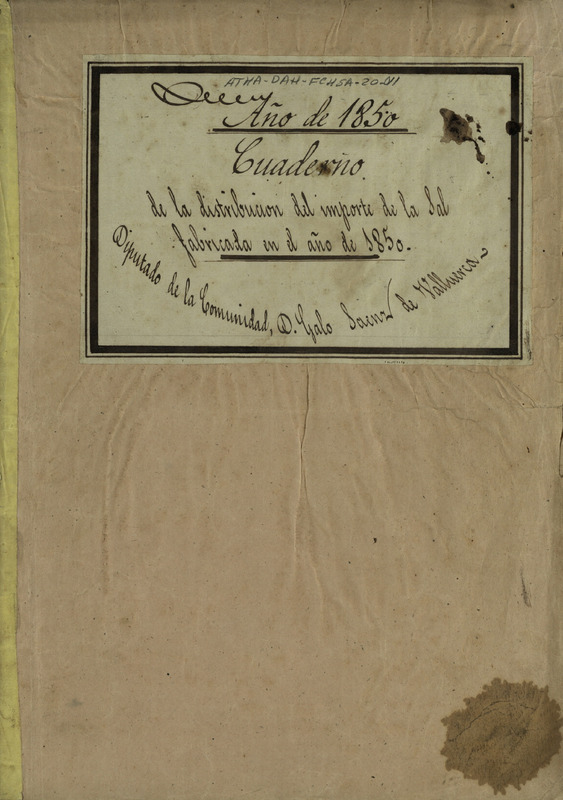 ATHA-DAH-FCHSA-20-11
Año de 1850
Cuaderno
de la distribucion del importe de la Sal
fabricada en el año de 1850.
Diputado de la Comunidad, D. Galo Saenz de Valluerca.